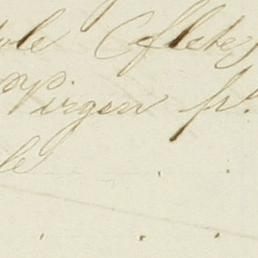 ole (flete)
Virgen p.
le